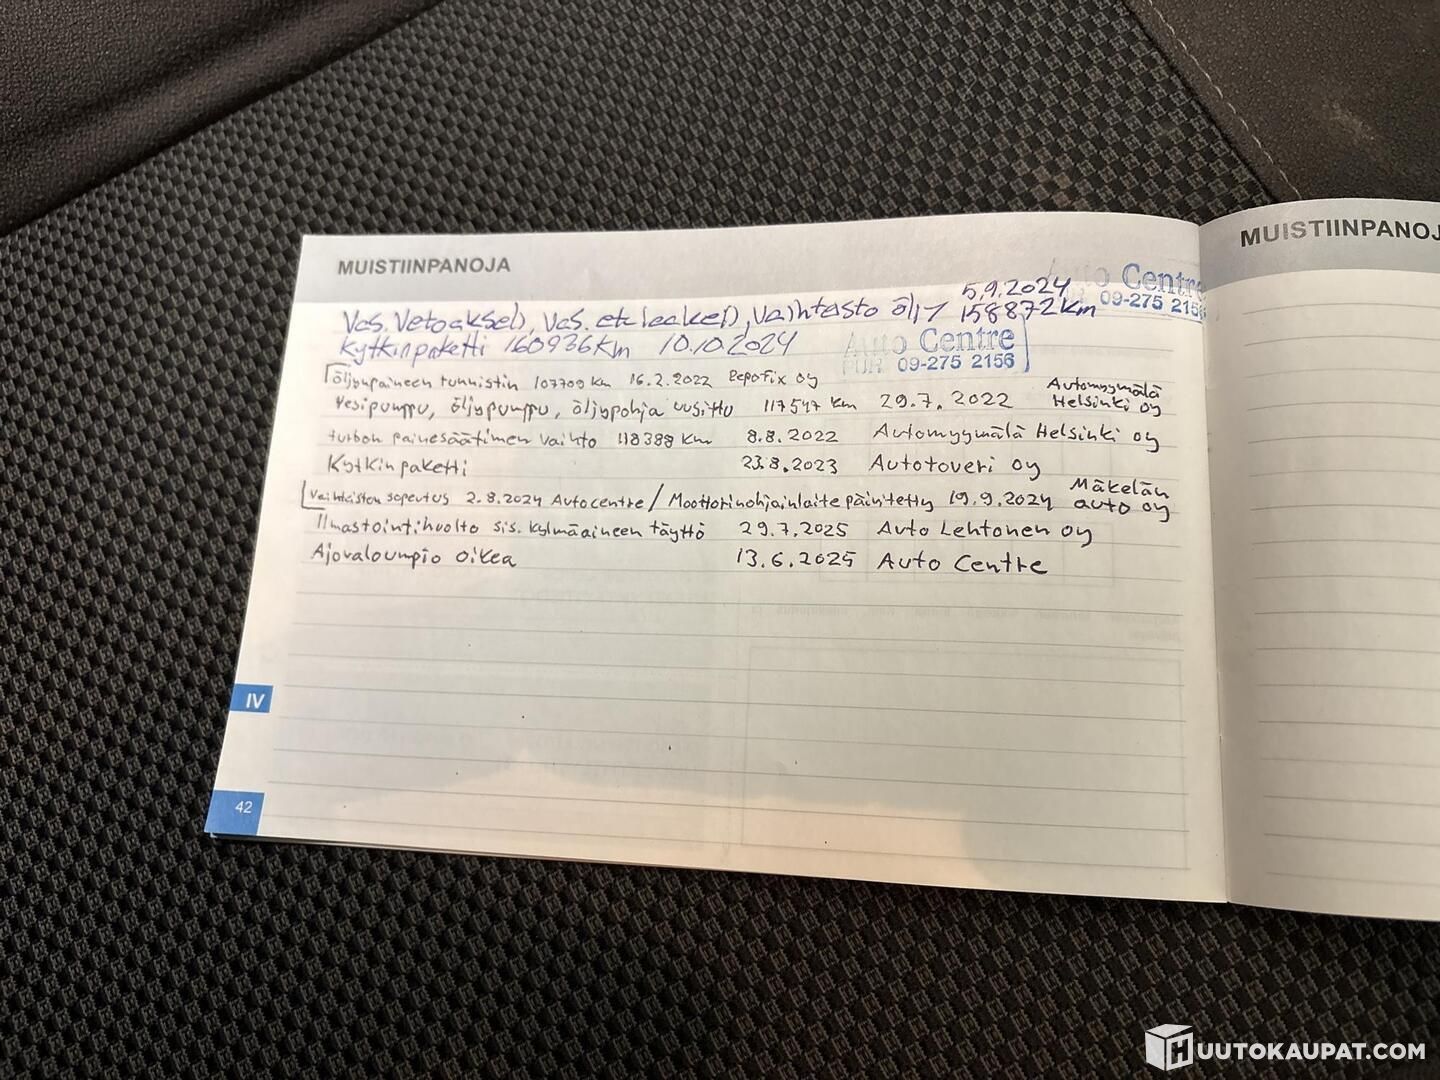 MUISTIINPANOJA
MUISTIINPANOJ
Auto Centre
09-275 2156
5.9.2024
Vas. Vetoakseli, Vas. etulaakeri, vaihteisto öljy 158872km
Kytkinpaketti 160936Km 10.10.2024
Auto Centre
PUR. 09-275 2156
öljynpaineen tunnistin 107700 Km 16.2.2022 Repofix oy
Vesipumppu, öljypumppu, öljypohja uusittu 117547 Km 29.7.2022 Automyymälä Helsinki oy
turbon painesäätimen vaihto 118388 Km 8.8.2022 Automyymälä Helsinki oy
Kytkinpaketti 23.8.2023 Autotoveri oy
Vaihteiston sopeutus 2.8.2024 Autocentre / Moottorinohjainlaite päivitetty 19.9.2024 Mäkelän auto oy
Ilmastointihuolto sis. kylmäaineen täyttö 29.7.2025 Auto Lehtonen oy
Ajovaloumpio oikea 13.6.2025 Auto Centre
IV
42
HUUTOKAUPAT.COM